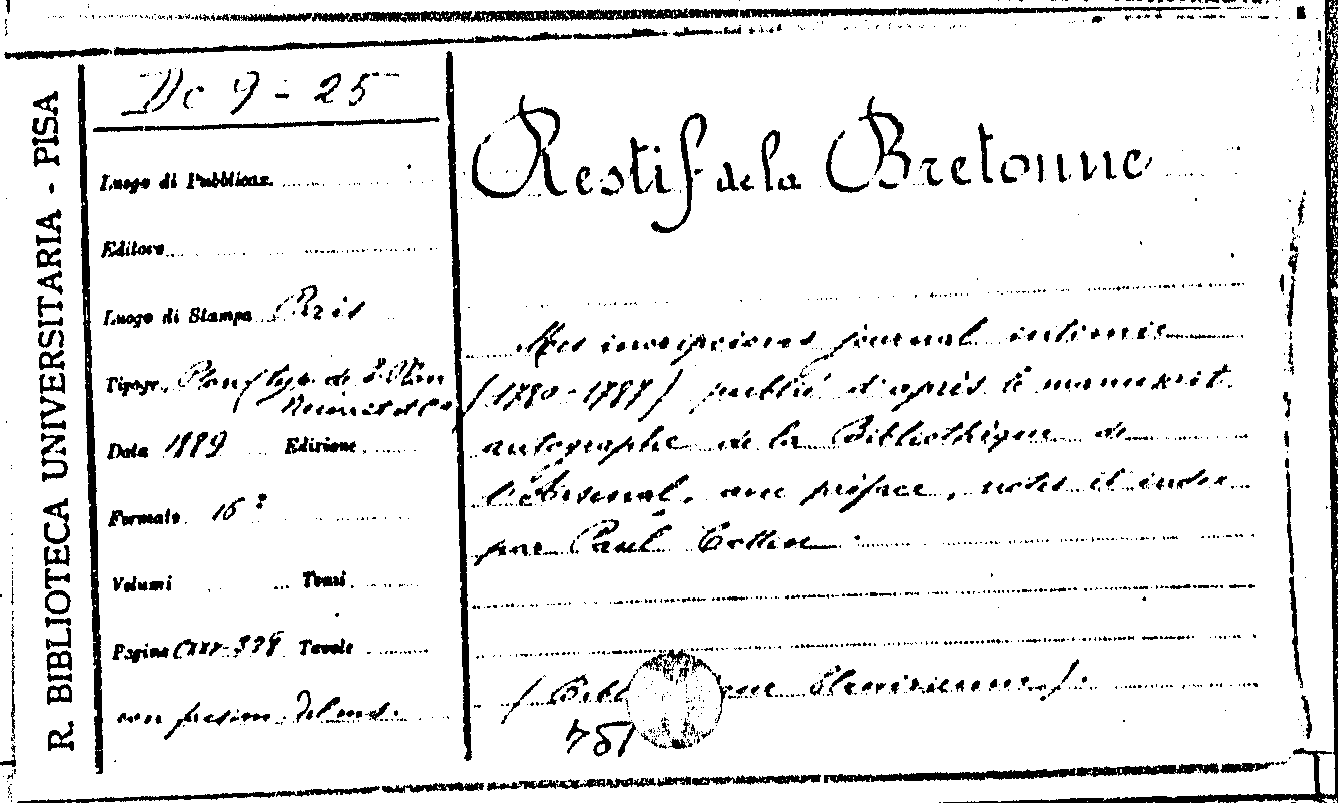 R. BIBLIOTECA UNIVERSITARIA - PISA
Dc 9 - 25
Luogo di Pubblicaz.
Editore
Luogo di Stampa
Tipogr. Plon (typ. de E. Plon
Nourrit et Cie)
Data 1889 Edizione
Formato 16º
Volumi Tomi
Pagine CXXV-338 Tavole
con facsim. del ms.
Restif de la Bretonne
Mes inscripcions journal intime
(1780-1787) publié d'après le manuscrit
autographe de la Bibliothèque de
l'Arsenal, avec préface, notes et index
par Paul Cottin.
Elzevirienne).
751